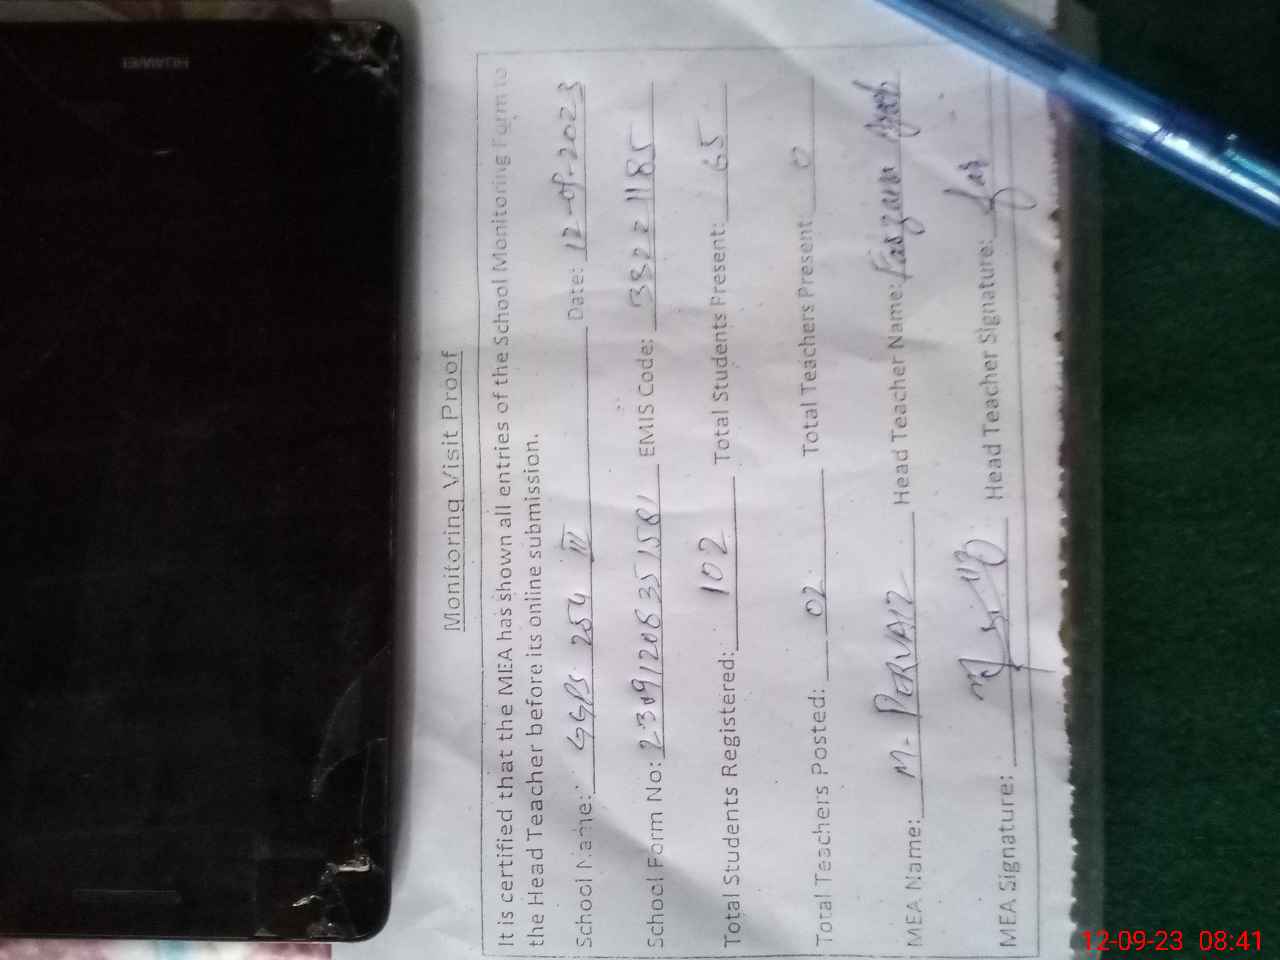 HUAWEI
Monitoring Visit Proof
It is certified that the MEA has shown all entries of the School Monitoring Form to
the Head Teacher before its online submission.
School Name: GGPS 254 II Date: 12-09-2023
School Form No: EMIS Code:
Total Students Registered: 102 Total Students Present: 65
Total Teachers Posted: 02 Total Teachers Present: 0
MEA Name: M. PERVAIZ Head Teacher Name:
MEA Signature: Head Teacher Signature:
12-09-23 08:41